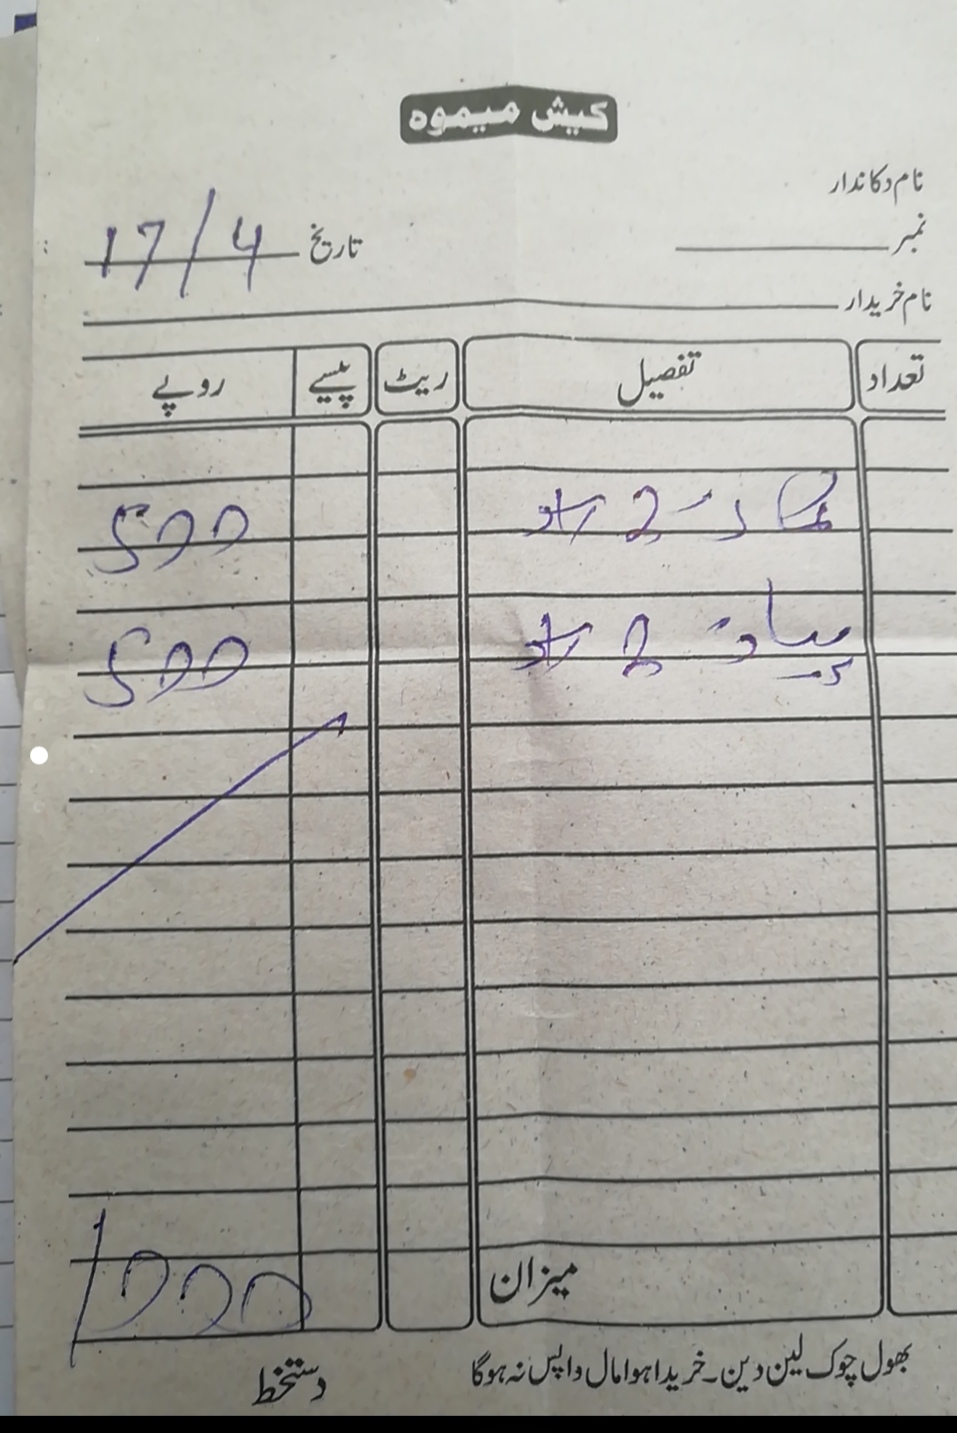 کیش میموہ
نام دکاندار
نمبر تاریخ 17/4
نام خریدار
تعداد تفصیل ریٹ پیسے روپے
2 500
پیاز 2 500
میزان 1000
بھول چوک لین دین۔ خریدا ہوا مال واپس نہ ہوگا دستخط